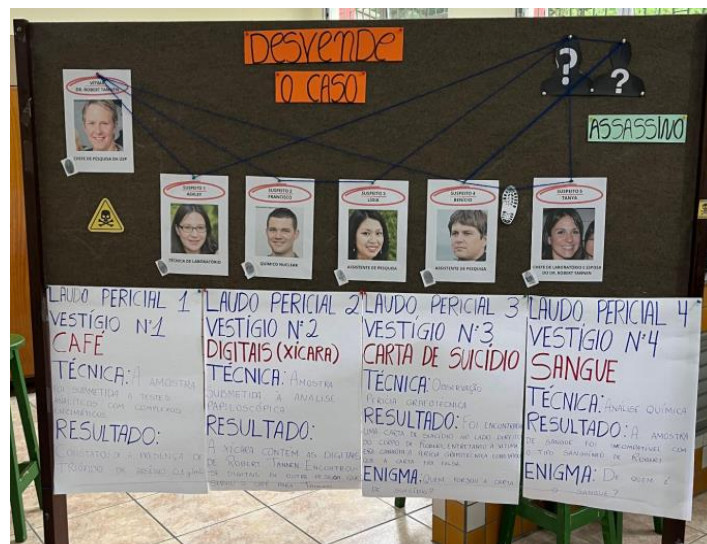 DESVENDE
O CASO
?
?
ASSASSINO
VÍTIMA
DR. ROBERT TANNEN
CHEFE DE PESQUISA DA USP
SUSPEITO 1
ASHLEY
TÉCNICA DE LABORATÓRIO
SUSPEITO 2
FRANCISCO
QUÍMICO NUCLEAR
SUSPEITO 3
ASSISTENTE DE PESQUISA
SUSPEITO 4
BENÍCIO
ASSISTENTE DE PESQUISA
SUSPEITO 5
TANYA
CHEFE DE LABORATÓRIO E ESPOSA
DO DR. ROBERT TANNEN
LAUDO PERICIAL 1
VESTÍGIO Nº1
CAFÉ
TÉCNICA: A AMOSTRA
FOI SUBMETIDA A TESTES
ANALÍTICOS COM COMPLEXOS
RESULTADO:
CONSTATOU A PRESENÇA DE
TRIÓXIDO DE ARSÊNIO
LAUDO PERICIAL 2
VESTÍGIO Nº2
DIGITAIS (XÍCARA)
TÉCNICA: AMOSTRA
SUBMETIDA À ANÁLISE
PAPILOSCÓPICA
RESULTADO:
A XÍCARA CONTÉM AS DIGITAIS
DE ROBERT TANNEN. ENCONTROU-
LAUDO PERICIAL 3
VESTÍGIO Nº3
CARTA DE SUICÍDIO
TÉCNICA: OBSERVAÇÃO
PERÍCIA GRAFOTÉCNICA
RESULTADO: FOI ENCONTRADA
UMA CARTA DE SUICÍDIO AO LADO DIREITO
DO CORPO DE ROBERT, ENTRETANTO A VÍTIMA
QUE A CARTA ERA FALSA
ENIGMA: QUEM FORJOU A CARTA
DE SUICÍDIO?
LAUDO PERICIAL 4
VESTÍGIO Nº4
SANGUE
TÉCNICA: ANÁLISE QUÍMICA
RESULTADO: A AMOSTRA
DE SANGUE FOI INCOMPATÍVEL COM
O TIPO SANGUÍNEO DE ROBERT
ENIGMA: DE QUEM É
O SANGUE?